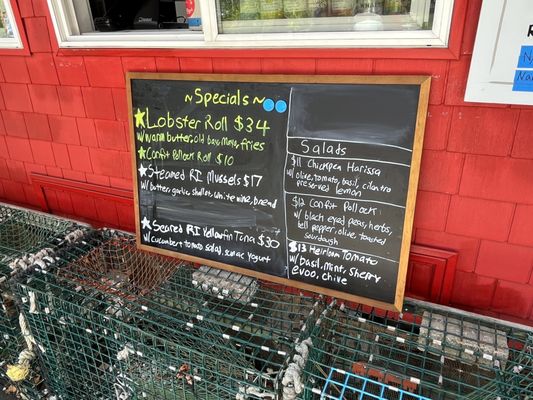 ~Specials~
Lobster Roll $34
w/ warm butter, old bay mayo, fries
Confit Pollock Roll $10
Steamed RI Mussels $17
w/ butter, garlic, shallot, white wine, bread
Seared RI Yellowfin Tuna $30
w/ cucumber tomato salad, sumac yogurt
Salads
$11 Chickpea Harissa
w/ olive, tomato, basil, cilantro
preserved lemon
$12 Confit Pollock
w/ black eyed pear, herbs,
bell pepper, olive, toasted
sourdough
$13 Heirloom Tomato
w/ basil, mint, sherry
evoo, chive